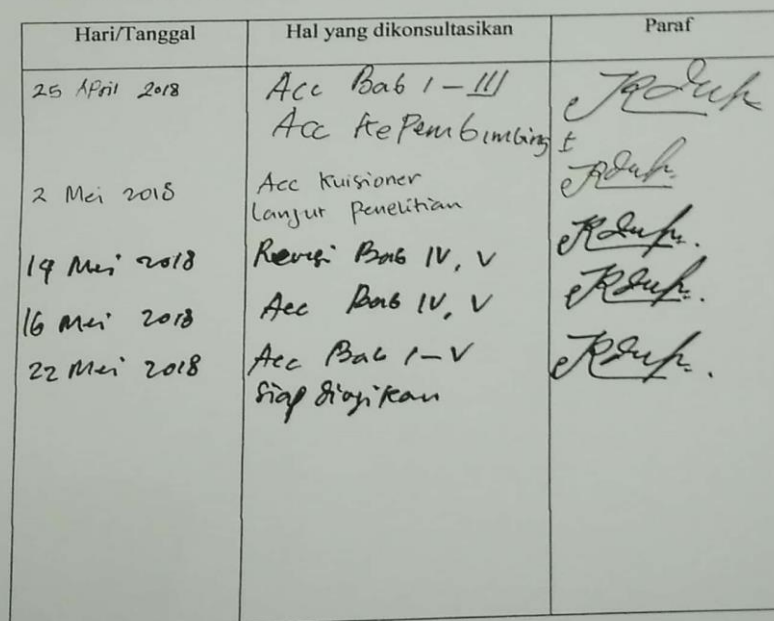 Hari/Tanggal Hal yang dikonsultasikan Paraf
25 April 2018 Acc Bab I - III
Acc ke Pembimbing I
2 Mei 2018 Acc Kuisioner
Lanjut Penelitian
14 Mei 2018 Revisi Bab IV, V
16 Mei 2018 Acc Bab IV, V
22 Mei 2018 Acc Bab I-V
Siap diujikan